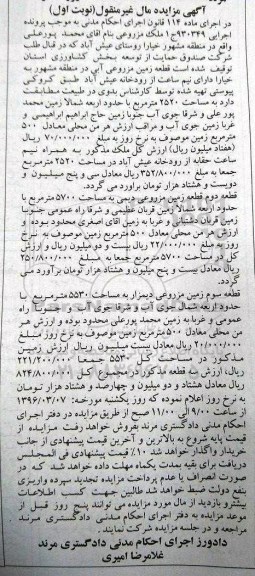 آگهی مزایده مال غیرمنقول(نوبت اول)
در اجرای ماده ۱۱۴ قانون اجرای احکام مدنی به موجب پرونده
اجرایی ۹۳۰۳۴۹ج۱ ملک مزروعی بنام اقای محمد پورعلی
واقع در منطقه مشهور خیارا روستای عیش آباد که در قبال طلب
شرکت صندوق حمایت از توسعه بخش کشاورزی استان
توقیف شده است قطعه زمین مزروعی آبی در منطقه مشهور به
خیارا دارای نیم ساعت از رودخانه عیش آباد طبق کروکی
پیوستی تهیه شده توسط کارشناس بدوی در طبیعت مطابقت
دارد به مساحت ۲۵۲۰ مترمربع با حدود اربعه شمالا زمین محمد
پور علی و شرقا جوی آب و جنوبا زمین حاج ابراهیم ابراهیمی و
غربا زمین جوی آب و عرافی ارزش هر من محلی معادل ۵۰۰
مترمربع زمین موصوف به نرخ روز به مبلغ ۷۰/۰۰۰/۰۰۰ ریال
(هفتاد میلیون ریال) ارزش کل ملک مذکور به همراه نیم
ساعت حقابه از رودخانه عیش آباد در مساحت ۲۵۲۰ مترمربع
جمعا به مبلغ ۳۵۲/۸۰۰/۰۰۰ ریال معادل سی و پنج میلیون و
دویست و هشتاد هزار تومان براورد می گردد.
قطعه دوم قطعه زمین مزروعی دیمی به مساحت ۵۷۰۰ مترمربع با
حدود اربعه شمالا زمین قربان عظیمی و شرقا راه عمومی جنوبا
زمین قربان دشتبانی و غربا به زمین اقای اصغری محدود بوده و
ارزش هر من محلی معادل ۵۰۰ مترمربع زمین موصوف به نرخ
روز به مبلغ ۲۲/۰۰۰/۰۰۰ ریال بیست و دو میلیون ریال و ارزش
کل در مساحت ۵۷۰۰ مترمربع جمعا به مبلغ ۲۵۰/۸۰۰/۰۰۰
ریال معادل بیست و پنج میلیون و هشتاد هزار تومان برآورد می
گردد.
قطعه سوم زمین مزروعی دیمزار به مساحت ۵۵۳۰ مترمربع با
حدود اربعه شمال جوی آب و شرقا جوی آب و جنوبا راه
عمومی و غربا به زمین محمد پورعلی محدود بوده و ارزش هر
من محلی معادل ۵۰۰ مترمربع زمین موصوف به نرخ روز مبلغ
۲۰/۰۰۰/۰۰۰ ریال معادل بیست میلیون ریال ارزش زمین
مذکور در مساحت کل ۵۵۳۰ جمعا ۲۲۱/۲۰۰/۰۰۰
ریال، ارزش سه قطعه مذکور در مجموع کل ۸۲۴/۸۰۰/۰۰۰
ریال معادل هشتاد و دو میلیون و چهارصد و هشتاد هزار تومان
به نرخ روز اعلام نموده که روز یکشنبه مورخه: ۱۳۹۶/۰۳/۰۷
از ساعت ۹/۰۰ الی ۱۱/۰۰ صبح از طریق مزایده در دفتر اجرای
احکام مدنی دادگستری مرند بفروش خواهد رفت مزایده از
قیمت پایه شروع به بالاترین و آخرین قیمت پیشنهادی از جانب
خریدار واگذار خواهد شد ۱۰٪ قیمت پیشنهادی فی المجلس
دریافت برای بقیه بمدت یکماه مهلت داده خواهد شد که در
صورت انصراف یا عدم پرداخت مزایده تجدید سپرده واریزی
بنفع دولت ضبط خواهد شد طالبین جهت کسب اطلاعات
بیشتر و بازدید از مال مورد مزایده می توانند پنج روز قبل از
موعد مزایده به دفتر اجرای احکام مدنی دادگستری مرند
مراجعه و در جلسه مزایده شرکت نمایند.
دادورز اجرای احکام مدنی دادگستری مرند
غلامرضا امیری